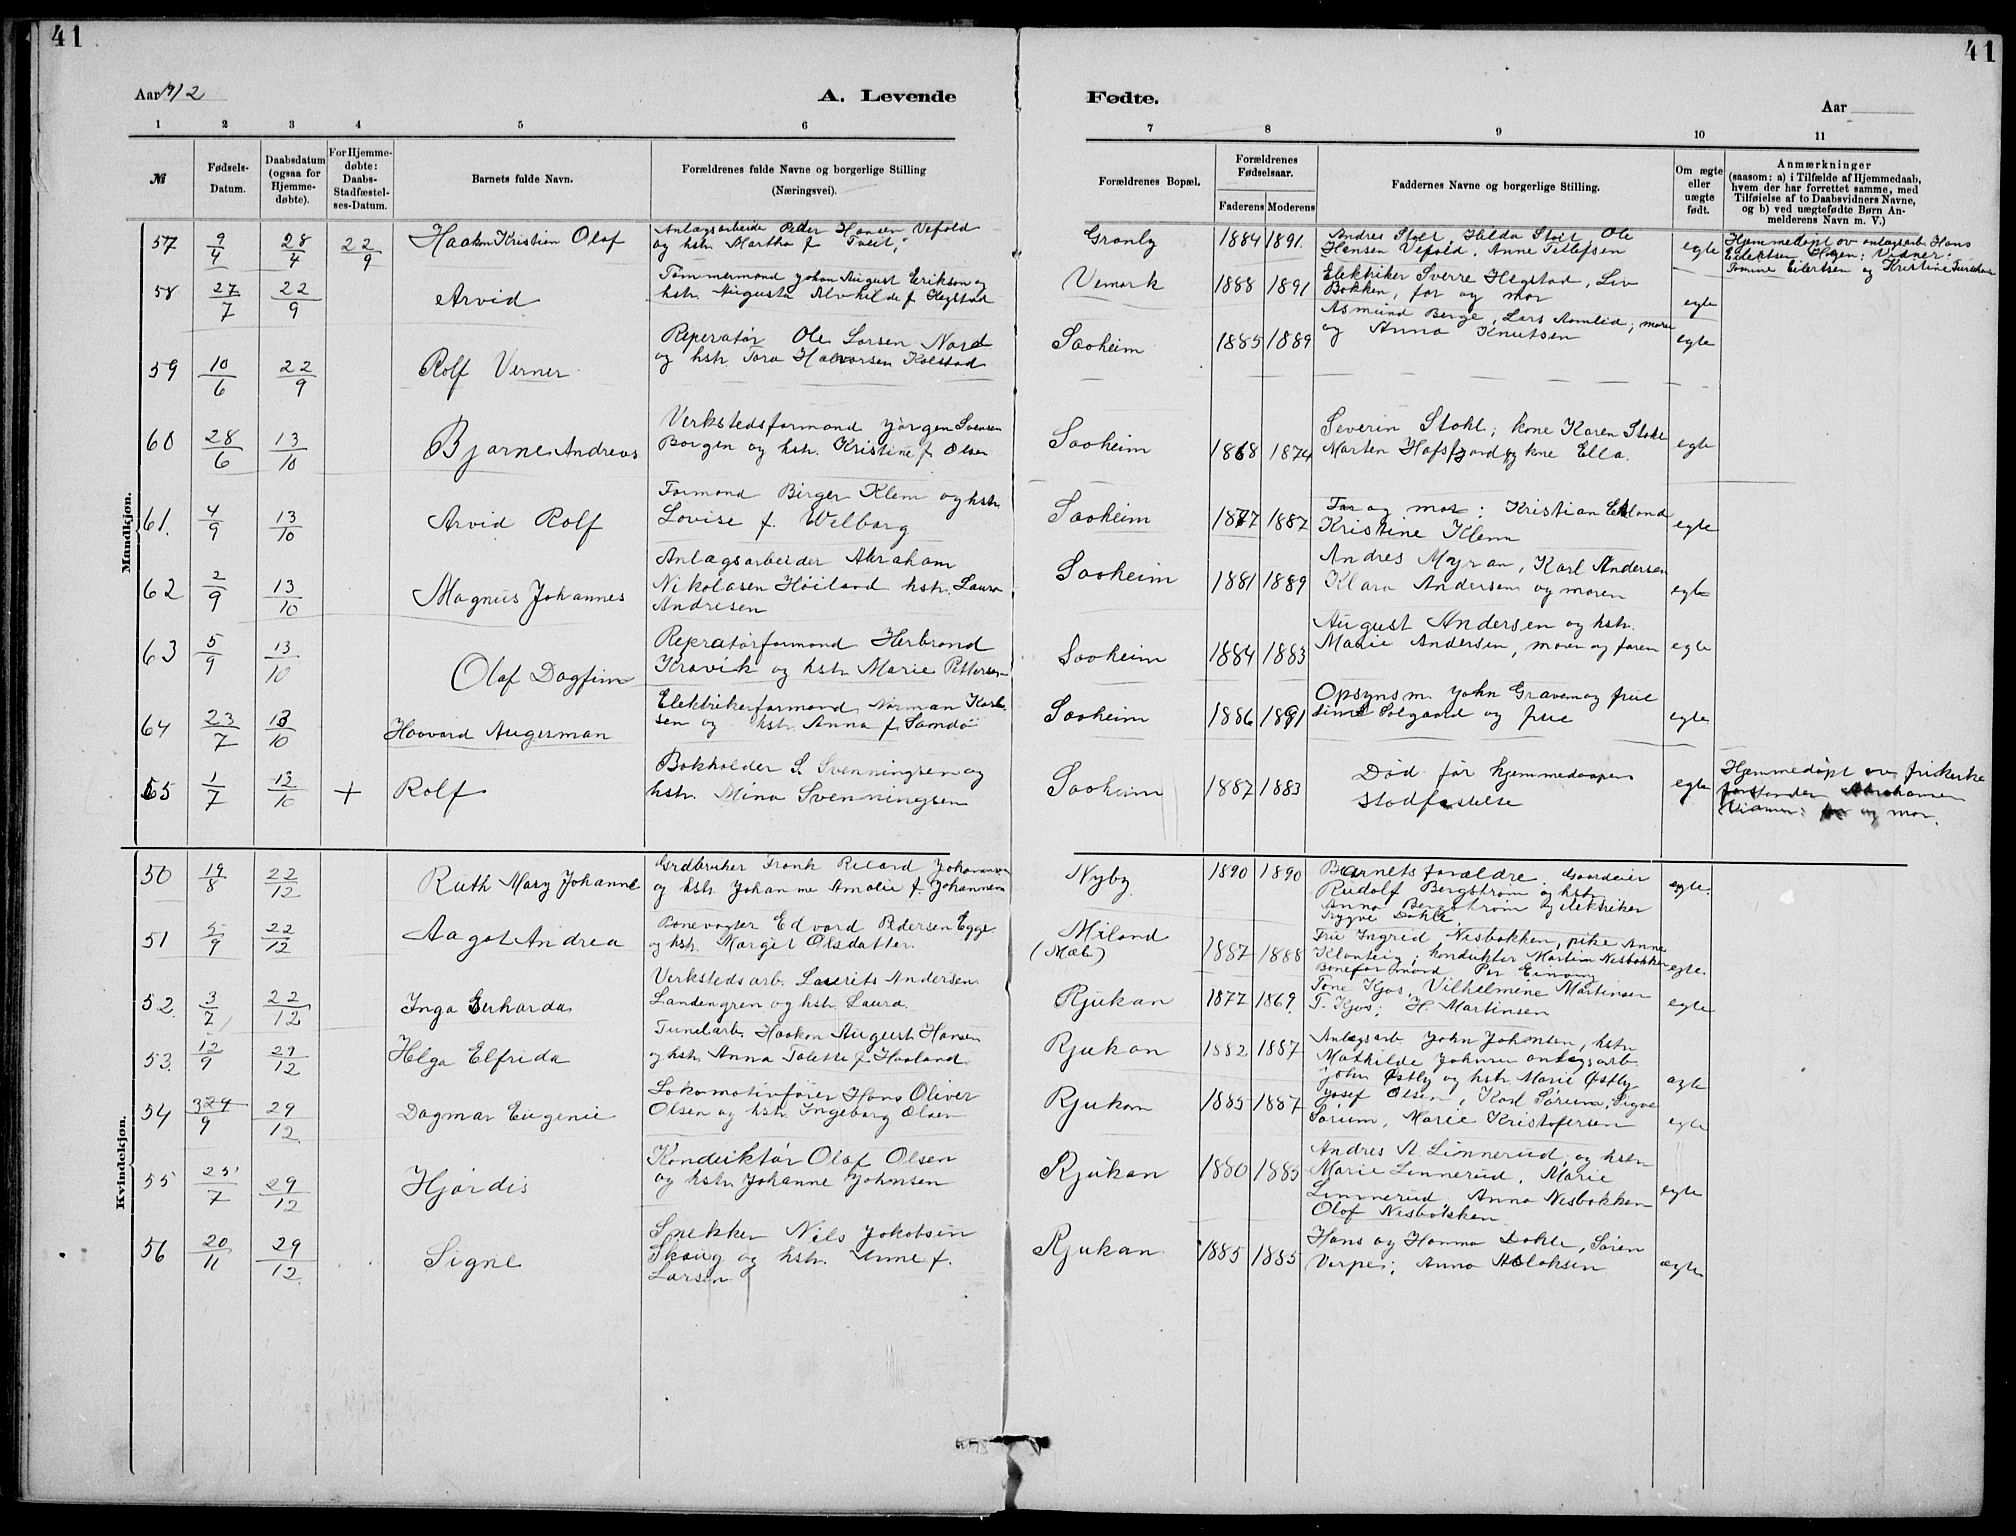 41
41
Aar 1912
A. Levende
Fødte.
Aar
1 2 3 4 5 6 7 8 9 10 11
№
Fødsels-
Datum.
Daabsdatum
(ogsaa for
Hjemme-
døbte).
For Hjemme-
døbte:
Daabs-
Stadfæstel-
ses-Datum.
Barnets fulde Navn.
Forældrenes fulde Navne og borgerlige Stilling
(Næringsvei).
Forældrenes Bopæl.
Forældrenes
Fødselsaar.
Faderens Moderens
Faddernes Navne og borgerlige Stilling.
Om ægte
eller
uægte
født.
Anmærkninger
(saasom: a) i Tilfælde af Hjemmedaab,
hvem der har forrettet samme, med
Tilføielse af to Daabsvidners Navne,
og b) ved uægtefødte Børn An-
melderens Navn m. V.)
Mandkjøn.
57 9/4 28/4 22/9 Haakon Kristian Olaf
Anlægsarbeide Peder Hansen Vefold
og hstr. Martha f. Tveit,
Granly 1884 1891.
Andres Stolt Hilda Stolt Ole
Hansen Vefold, Anne Tellefsen
egte
Hjemmedøpt av anlægsarb. Hans
Eilertsen Hagen; Vidner:
Tomine Eilertsen og Kristine
58 27/7 22/9 Arvid
Tømmermand Johan August Erikson og
hstr. Augusta Alvhilde f. Hegstad
Vemork 1888 1891
Elektriker Sverre Hegstad, Liv
Bakken, far og mor
egte
59 10/6 22/9 Rolf Verner
Reperatør Ole Larsen Nord
og hstr. Tora Halvorsen Kolstad
Saaheim 1885 1889
Asmund Berge, Lars Aamlid; moren
og Anna Knutsen
egte
60 28/6 13/10 Bjarne Andreas
Verkstedsformand Jørgen Svensen
Borgen og hstr. Kristine f. Olsen
Saaheim 1868 1874
Severin Stokl; kone Karen Stokl
Marten Hafsfjord og kone Ella.
egte
61. 4/9 13/10 Arvid Rolf
Formand Birger Klem og hstr.
Lovise f. Welborg
Saaheim 1877 1887
Far og mor: Kristian Ekland
Kristine Klem
egte
62 2/9 13/10 Magnus Johannes
Anlægsarbeider Abraham
Nikolasen Høiland hstr. Laura
Andresen
Saaheim 1881 1889
Andres Myran, Karl Andersen
Klara Andersen og moren
egte
63 5/9 13/10 Olaf Dagfinn
Repratørformand Herbrand
Kravik og hstr. Marie Pettersen
Saaheim 1884 1883
August Andersen og hstr.
Marie Andersen, moren og faren
egte
64 23/7 13/10 Haavard Augerman
Elektrikerformand Norman Karl-
sen og hstr. Anna f. Sandø
Saaheim 1886 1891
Opsynsm. John Graven og frue
Solgaard og frue
egte
65 1/7 13/10 + Rolf
Bokholder S. Svenningsen og
hstr. Mina Svenningsen
Saaheim 1887 1883
Død før hjemmedaapens
stadfæstelse
egte
Hjemmedøpt av frikirke
forstander Abrahamsen
Vidner: far og mor.
Kvindekjøn.
50 19/8 22/12 Ruth Mary Johanne
Grdbruker Frank Ricard Johannesen
og hstr. Johanne Amalie f. Johannesen
Nyby 1890 1890
Barnets forældre. Gaardeier
Rudolf Bergstrøm og hstr.
Anna Bergstrøm og elektriker
Trygve Dahle
egte.
51 5/9 22/12 Aagot Andrea
Banevogter Edvard Pedersen Egge
og hstr. Margit Olsdatter.
Miland
(Mæl) 1887 1888
Fru Ingrid Nisbakken, pike Anne
Klonteig; konduktør Martin Nisbakken
Baneformand Per Einong
egte.
52. 3/7 22/12 Inga Gerharda
Verkstedsarb. Laurits Andersen
Landengren og hstr. Laura
Rjukan 1877 1869.
Tone Kjos, Vilhelmine Martinsen
T. Kjos; H. Martinsen
egte
53. 12/9 29/12 Helga Elfrida
Tunelarb. Haakon August Hansen
og hstr. Anna Talette f. Haaland
Rjukan 1882 1887
Anlægsarb. John Johnsen, hstr.
Mathilde Johnsen anlægsarb.
John Østby og hstr. Marie Østby
ægte
54 /9 29/12 Dagmar Eugenie
Lokomotivfører Hans Oliver
Olsen og hstr. Ingeborg Olsen
Rjukan 1885 1887
Josef Olsen, Karl Sørum, Signe
Sørum, Marie Kristofersen
egte
55 25/7 29/12 Hjørdis
Konduktør Olaf Olsen
og hstr. Johanne Johnsen
Rjukan 1880 1885
Andres A. Linnerud, og hstr.
Marie Linnerud, Marie
Linnerud. Anna Nisbakken
Olaf Nisbakken
egte
56 20/11 29/12 Signe
Snekker Nils Jakobsen
Skaug og hstr. Anne f.
Larsen
Rjukan 1885 1885
Hans og Hanna Dahle, Søren
Verpe; Anna Aslaksen
ægte